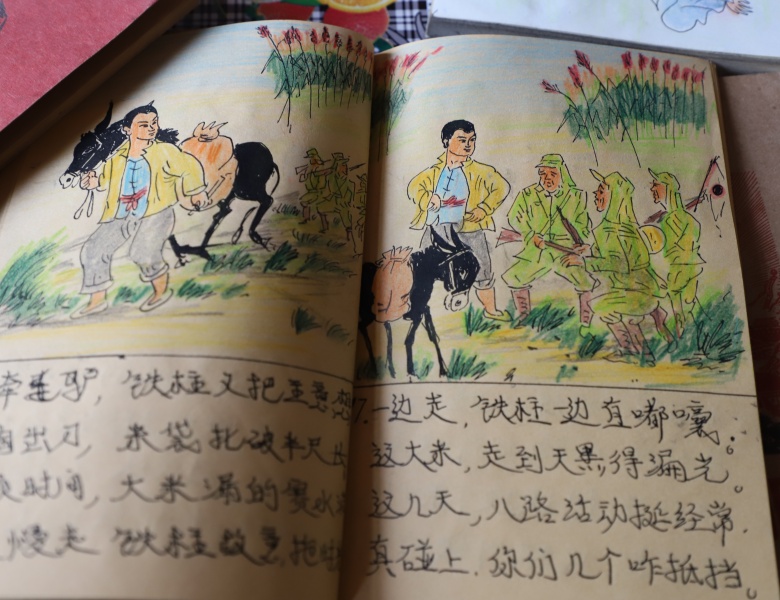 牵进驴，铁柱又把主意想
出刀，米袋扎破半尺长
时间，大米漏的像水
慢走 铁柱故意拖
7.一边走，铁柱一边直嘟囔：
这大米，走到天黑得漏光。
这几天，八路活动挺经常，
真碰上，你们几个咋抵挡。